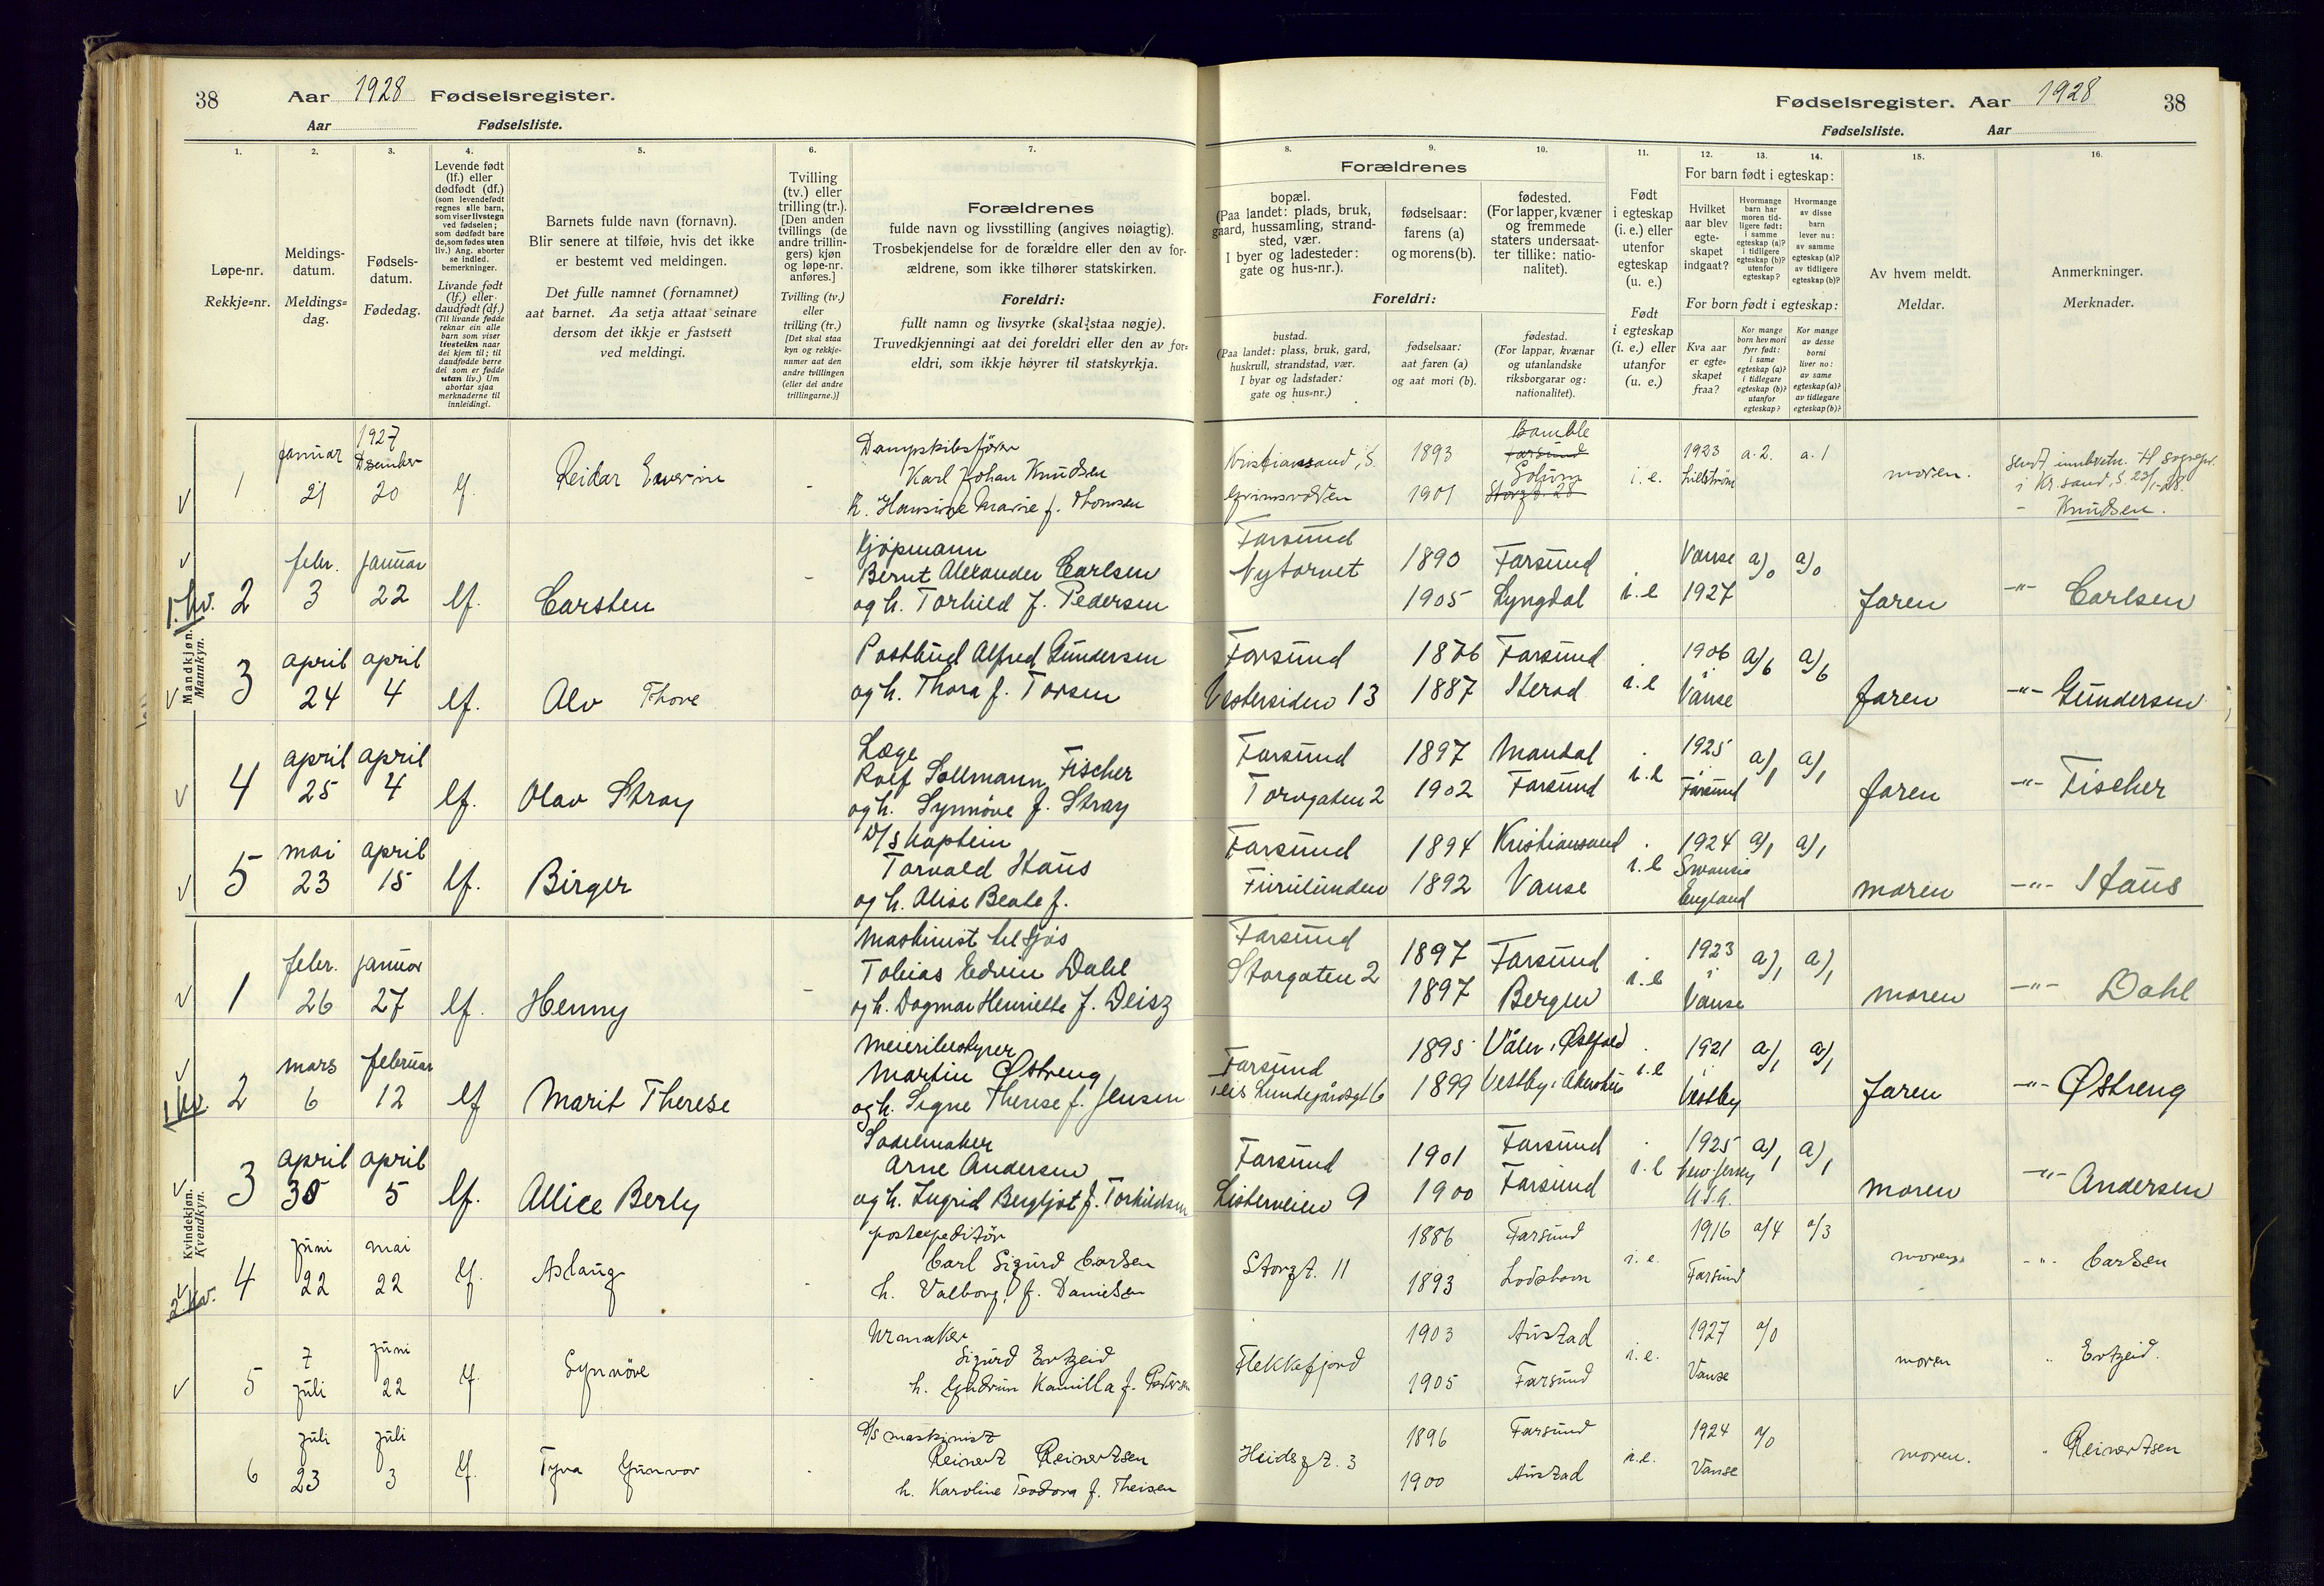 38 Aar 1928 Fødselsregister.
Aar Fødselsliste.
Fødselsregister. Aar 1928 38
Fødselsliste. Aar
1. 2. 3. 4. 5. 6. 7.
Løpe-nr.
Rekkje-nr.
Meldings-
datum.
Meldings-
dag.
Fødsels-
datum.
Fødedag.
Levende født
(lf.) eller
dødfødt (df.)
(som levendefødt
regnes alle barn,
som viser livstegn
ved fødselen;
som dødfødt bare
de, som fødes uten
liv.) Ang. aborter
se indled.
bemerkninger.
Livande født
(lf.) eller
daudfødt (df.)
(Til livande fødde
reknar ein alle
barn som viser
livsteikn naar
dei kjem til; til
daudfødde berre
dei som er fødde
utan liv.) Um
abortar sjaa
merknaderne til
innleidingi.
Barnets fulde navn (fornavn).
Blir senere at tilføie, hvis det ikke
er bestemt ved meldingen.
Det fulle namnet (fornamnet)
aat barnet. Aa setja attaat seinare
dersom det ikkje er fastsett
ved meldingi.
Tvilling
(tv.) eller
trilling (tr.).
[Den anden
tvillings (de
andre trillin-
gers) kjøn
og løpe-nr.
anføres.]
Tvilling (tv.)
eller
trilling (tr.)
[Det skal staa
kyn og rekkje-
numer aat den
andre tvillingen
(eller dei andre
trillingarne.)]
Forældrenes
fulde navn og livsstilling (angives nøiagtig).
Trosbekjendelse for de forældre eller den av for-
ældrene, som ikke tilhører statskirken.
Foreldri:
fullt namn og livsyrke (skal staa nøgje).
Truvedkjenningi aat dei foreldri eller den av for-
eldri, som ikkje høyrer til statskyrkja.
8. 9. 10. 11. 12. 13. 14. 15. 16.
Forældrenes
bopæl.
(Paa landet: plads, bruk,
gaard, hussamling, strand-
sted, vær.
I byer og ladesteder:
gate og hus-nr.).
fødselsaar:
farens (a)
og morens (b).
fødested.
(For lapper, kvæner
og fremmede
staters undersaat-
ter tillike: natio-
nalitet).
Foreldri:
bustad.
(Paa landet: plass, bruk, gard,
huskrull, strandstad, vær.
I byar og ladstader:
gate og hus-nr.)
fødselsaar:
aat faren (a)
og aat mori (b).
fødestad.
(For lappar, kvænar
og utanlandske
riksborgarar og:
nationalitet).
Født
i egteskap
(i. e.) eller
utenfor
egteskap
(u. e.)
Født
i egteskap
(i. e.) eller
utanfor
(u. e.)
For barn født i egteskap:
Hvilket
aar blev
egte-
skapet
indgaat?
Hvormange
barn har
moren tid-
ligere født:
i samme
egteskap (a)?
i tidligere
egteskap (b)?
utenfor
egteskap?
Hvormange
av disse
barn
lever nu:
av samme
egteskap (a)?
av tidligere
egteskap (b)?
For born født i egteskap:
Kva aar
er egte-
skapet
fraa?
Kor mange
born hev mori
fyrr født:
i same
egteskap (a)?
i tidlegare
egteskap (b)?
utanfor
egteskap?
Kor mange
av desse
borni
liver no:
av same
egteskap (a)?
av tidlegare
egteskap (b)?
Av hvem meldt.
Meldar.
Anmerkninger.
Merknader.
Mandkjøn.
Mannkyn.
1927
januar Desember
1 21 20 lf. Reidar -
Dampskibsfører
Karl Johan Knudsen
h. Hansine Marie f. Thomsen
Kristiansand, S. 1893 Bamble
Farsund
Solum
1901 Storgt. 28
i. e. 1923 a. 2. a. 1 moren.
i Kr.sand, S. 23/1-28.
- Knudsen.
1. kv. 2 febr. 3 januar 22 lf. Carsten -
Kjøpmann
Bernt Alexander Carlsen
og h. Torhild f. Pedersen
Farsund
Nytorvet
1890 Farsund
1905 Lyngdal
i.e Vanse 1927 a/0 a/0 faren -"- Carlsen
3 april 24 april 4 lf. Alv Thore
Postbud Alfred Gundersen
og h. Thora f. Torsen
Farsund
Vestersiden 13
1876 Farsund
1887 Herad
i.e 1906 Vanse a/6 a/6 faren -"- Gundersen
4 april 25 april 4 lf. Olav Stray
Læge
Rolf Sollmann Fischer
og h. Synnøve f. Stray
Farsund
Torvgaten 2
1897 Mandal
1902 Farsund
i.e 1925 Farsund a/1 a/1 faren -"- Fischer
5 mai 23 april 15 lf. Birger
D/S Kaptein
Torvald Staus
og h. Alise Beate f.
Farsund
Furulunden
1894 Kristiansand
1892 Vanse
i.e 1924 England a/1 a/1 moren -"- Staus
Kvindekjøn.
Kvendkyn.
1 febr. 26 januar 27 lf. Henny -
Maskinist til sjøs
Tobias Edvin Dahl
og h. Dagmar Henriette f. Deisz
Farsund
Storgaten 2
1897 Farsund
1897 Bergen
i.e 1923 Vanse a/1 a/1 moren -"- Dahl
1 kv. 2 mars 6 februar 12 lf Marit Therese
Meieribestyrer
Martin Østreng
og h. Signe Therese f. Jensen
Farsund
1895 Våler i Østfold
1899 Vestby i Akershus
i.e 1921 Vestby a/1 a/1 faren -"- Østreng
3 april 30 april 5 lf. Allice Berly
Sadelmaker
Arne Andersen
og h. Ingrid Bergljot f. Torkildsen
Farsund
Listerveien 9
1901 Farsund
1900 Farsund
i.e 1925 New Jersey U.S.A. a/1 a/1 moren -"- Andersen
2 kv. 4 juni 22 mai 22 lf. Aslaug
postexpeditør
Carl Sigurd Carlsen
h. Valborg f. Danielsen
Storgt. 11
1886 Farsund
1893 Lodshavn
i.e. 1916 Farsund a/4 a/3 moren -"- Carlsen
5 7 juli juni 22 lf. Synnöve -
Urmaker
Sigurd Ertzeid
h. Gudrun Kamilla f. Pedersen
Flekkefjord
1903 Austad
1905 Farsund
i.e. 1927 Vanse a/0 moren " Ertzeid.
6 juli 23 juli 3 lf. Tyra Gunvor -
D/S maskinist
Reinert Reinertsen
h. Karoline Teodora f. Theisen
Heidegt. 3
1896 Farsund
1900 Austad
i.e. 1924 Vanse a/0 moren. " Reinertsen